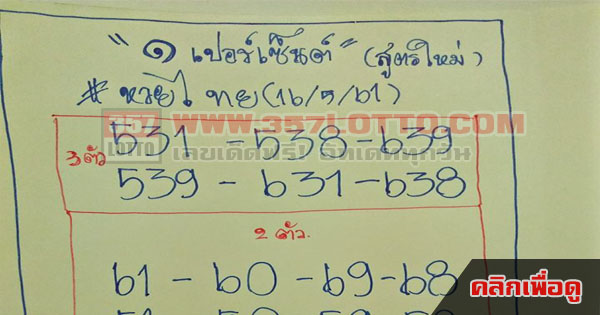 " ๑ เปอร์เซ็นต์ " (สูตรใหม่)
# หวยไทย (16/5/61)
357 LOTTO WWW.357LOTTO.COM
เลขเด็ดฟรี! อัพเดททุกวัน
3 ตัว
531 - 538 - 639
539 - 631 - 638
2 ตัว.
61 - 60 - 69 - 68
คลิกเพื่อดู